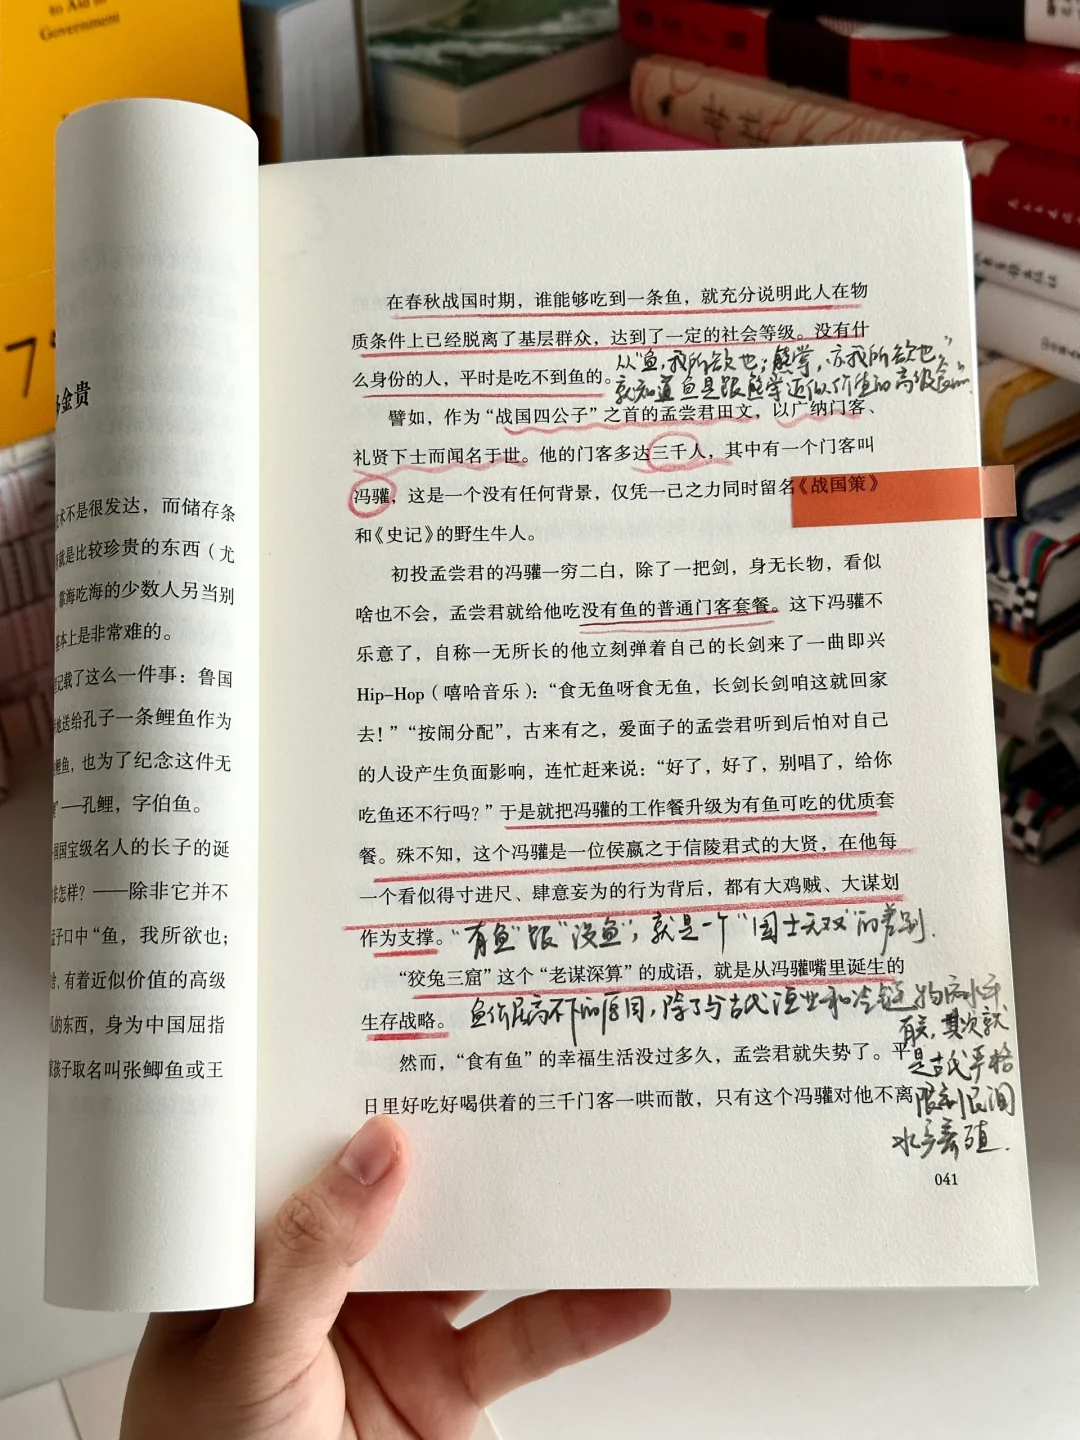 to Aid in
Government
7
金贵
术不是很发达，而储存条
就是比较珍贵的东西（尤
靠海吃海的少数人另当别
基本上是非常难的。
记载了这么一件事：鲁国
地送给孔子一条鲤鱼作为
鲤鱼，也为了纪念这件无
——孔鲤，字伯鱼。
国宝级名人的长子的诞
怎样？——除非它并不
孟子口中“鱼，我所欲也；
有着近似价值的高级
的东西，身为中国屈指
孩子取名叫张鲫鱼或王
在春秋战国时期，谁能够吃到一条鱼，就充分说明此人在物
质条件上已经脱离了基层群众，达到了一定的社会等级。没有什
么身份的人，平时是吃不到鱼的。
从“鱼，我所欲也；熊掌，亦我所欲也”
就知道鱼是跟熊掌近似价值的高级食品。
譬如，作为“战国四公子”之首的孟尝君田文，以广纳门客、
礼贤下士而闻名于世。他的门客多达三千人，其中有一个门客叫
冯驩，这是一个没有任何背景，仅凭一己之力同时留名《战国策》
和《史记》的野生牛人。
初投孟尝君的冯驩一穷二白，除了一把剑，身无长物，看似
啥也不会，孟尝君就给他吃没有鱼的普通门客套餐。这下冯驩不
乐意了，自称一无所长的他立刻弹着自己的长剑来了一曲即兴
Hip-Hop（嘻哈音乐）：“食无鱼呀食无鱼，长剑长剑咱这就回家
去！”“按闹分配”，古来有之，爱面子的孟尝君听到后怕对自己
的人设产生负面影响，连忙赶来说：“好了，好了，别唱了，给你
吃鱼还不行吗？”于是就把冯驩的工作餐升级为有鱼可吃的优质套
餐。殊不知，这个冯驩是一位侯嬴之于信陵君式的大贤，在他每
一个看似得寸进尺、肆意妄为的行为背后，都有大鸡贼、大谋划
作为支撑。
“有鱼”跟“没鱼”，就是一个“国士无双”的差别．
“狡兔三窟”这个“老谋深算”的成语，就是从冯驩嘴里诞生的
生存战略。
鱼价居高不下的原因，除了与古代渔业和冷链物流水平
有关，其次就
是古代严格
限制民间
水产养殖．
然而，“食有鱼”的幸福生活没过多久，孟尝君就失势了。平
日里好吃好喝供着的三千门客一哄而散，只有这个冯驩对他不离
041